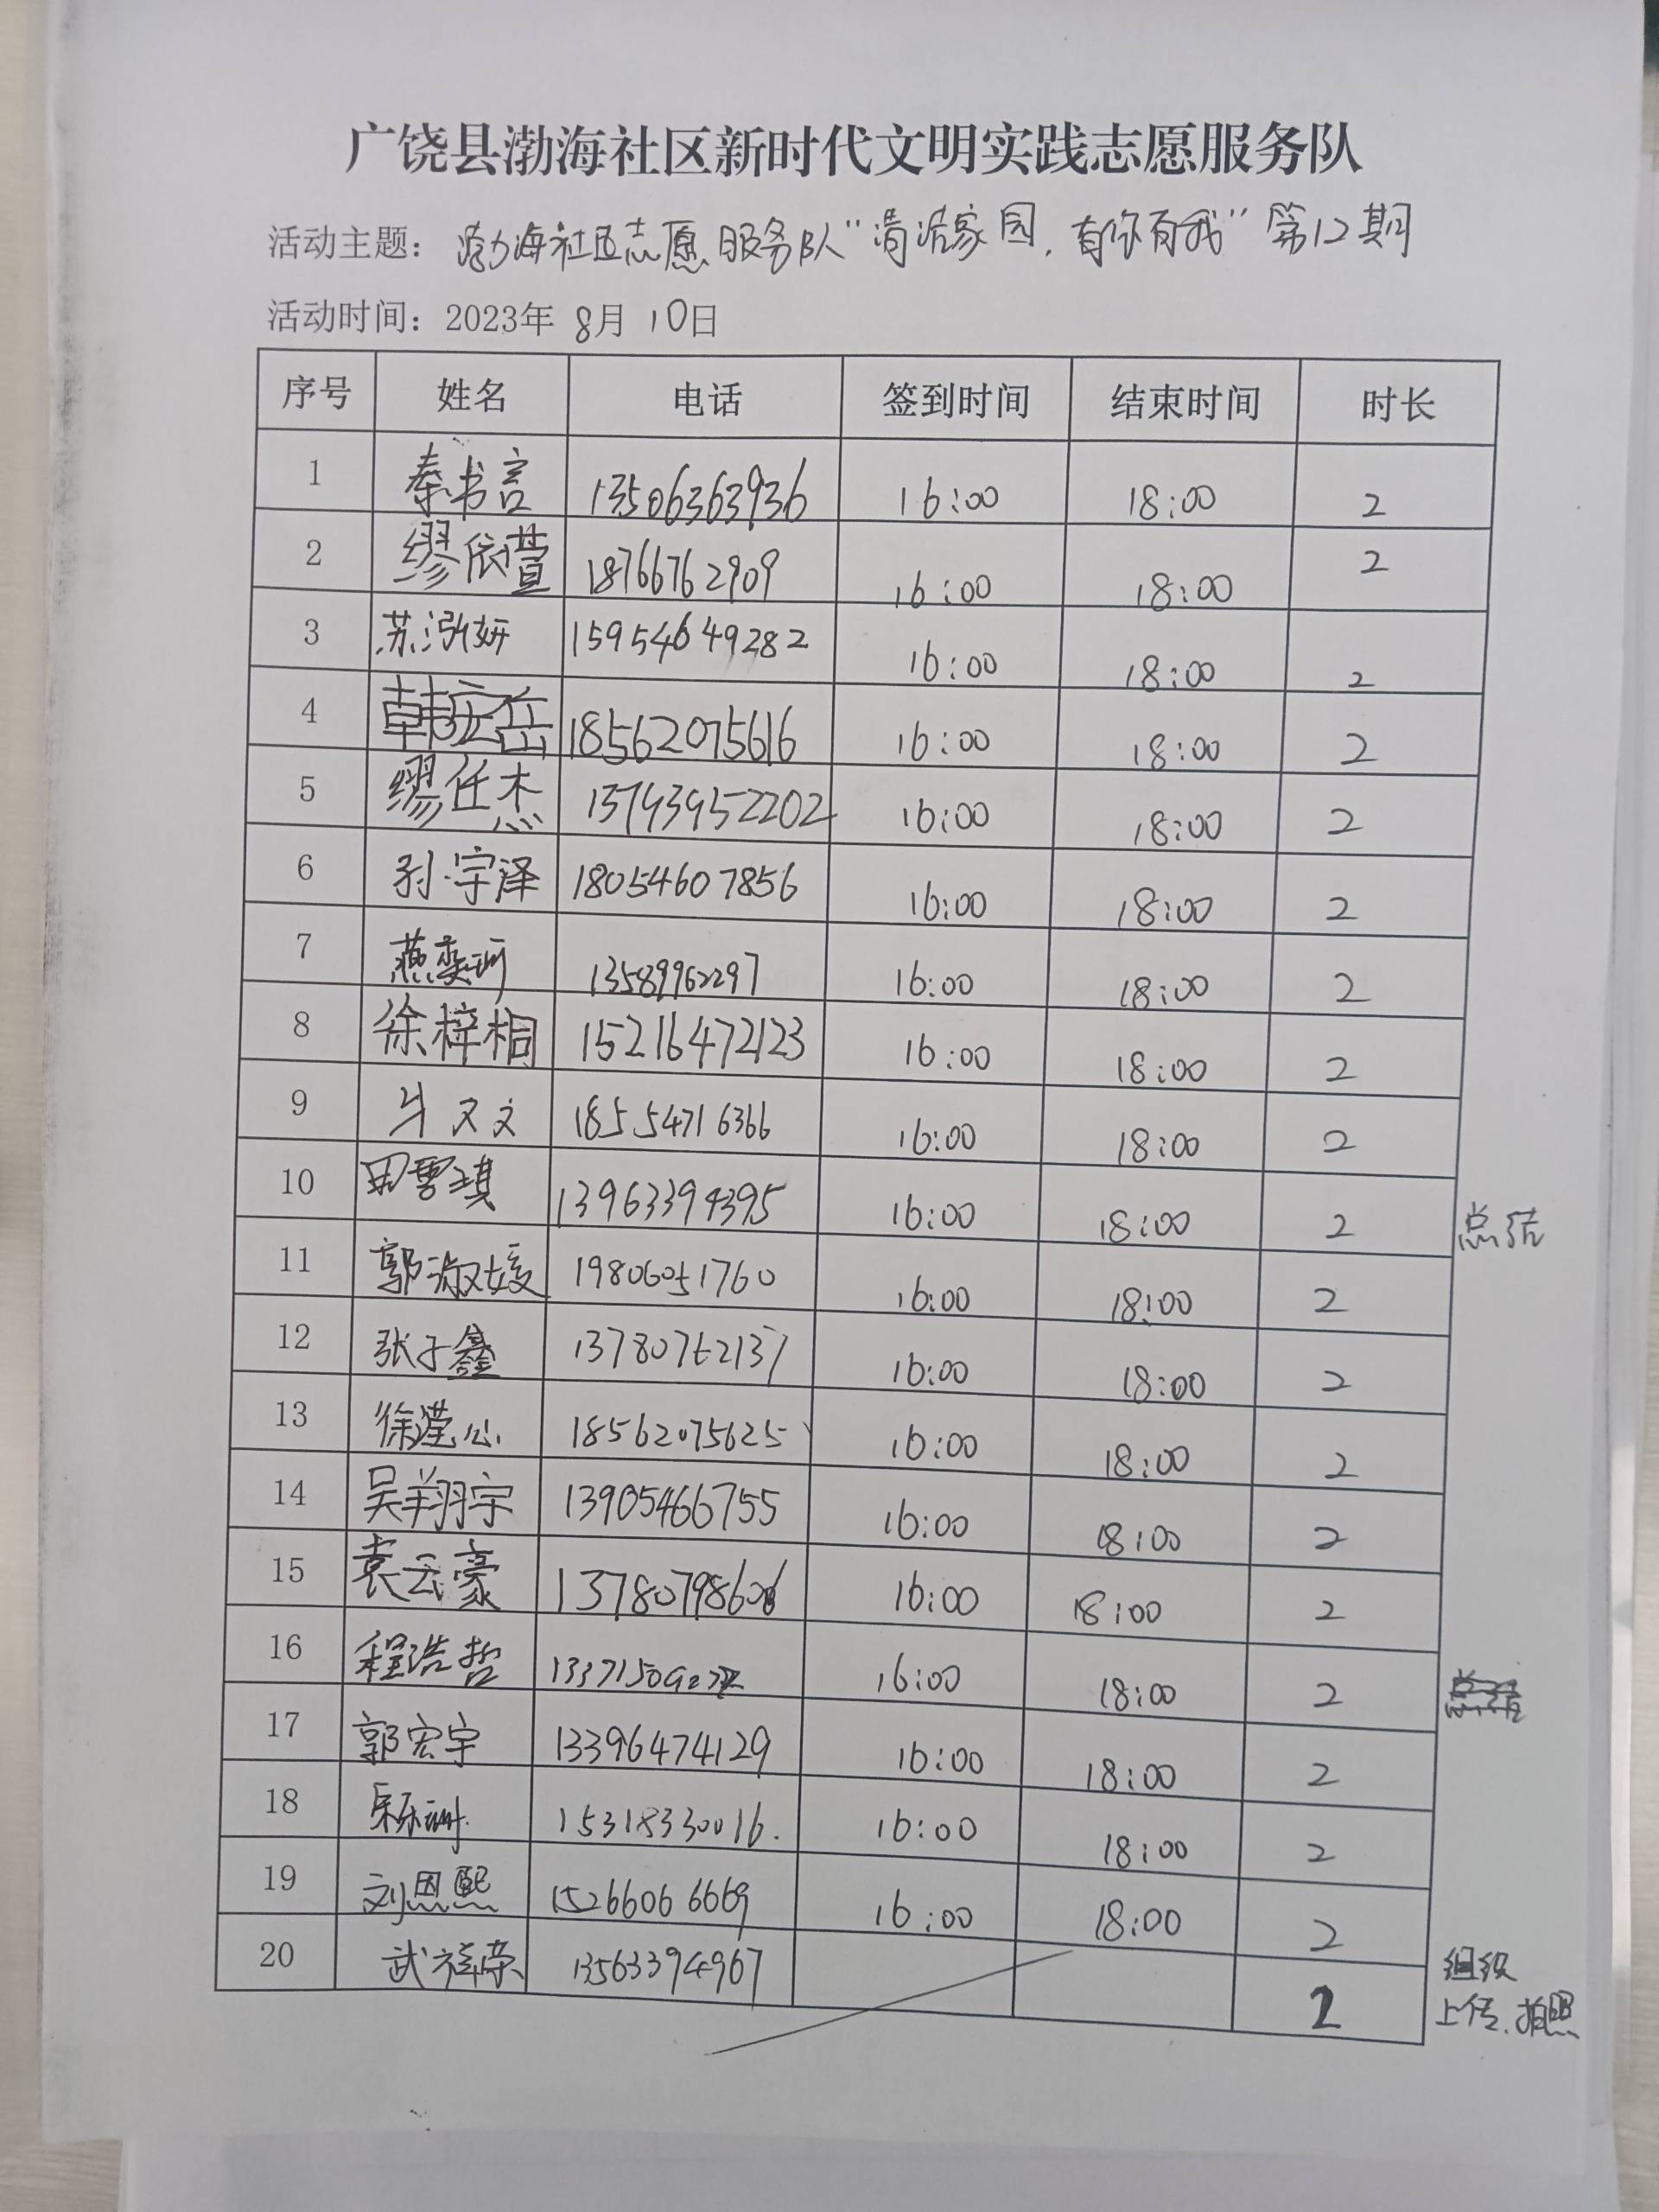 广饶县渤海社区新时代文明实践志愿服务队
活动主题: 渤海社区志愿服务队“清洁家园,有你有我”第12期
活动时间: 2023年 8月 10日
序号 姓名 电话 签到时间 结束时间 时长
1 秦书言 13506363936 16:00 18:00 2
2 缪依萱 18766762909 16:00 18:00 2
3 苏泓妍 15954649282 16:00 18:00 2
4 韩宏岳 18562075616 16:00 18:00 2
5 缪任杰 13793952202 16:00 18:00 2
6 孙宇泽 18054607856 16:00 18:00 2
7 燕奕珂 13589962297 16:00 18:00 2
8 徐梓桐 15216472123 16:00 18:00 2
9 牛又文 18554716366 16:00 18:00 2
10 田雪琪 13963394395 16:00 18:00 2 总结
11 郭淑媛 19806051760 16:00 18:00 2
12 张子鑫 13780762137 16:00 18:00 2
13 徐滢心 18562075625 16:00 18:00 2
14 吴翔宇 13905466755 16:00 18:00 2
15 袁云豪 13780798606 16:00 18:00 2
16 程浩哲 16:00 18:00 2
17 郭宏宇 13396474129 16:00 18:00 2
18 15318330016. 16:00 18:00 2
19 刘恩熙 15266066669 16:00 18:00 2
20 武祥荣 13563394967 2 组织
上传、拍照